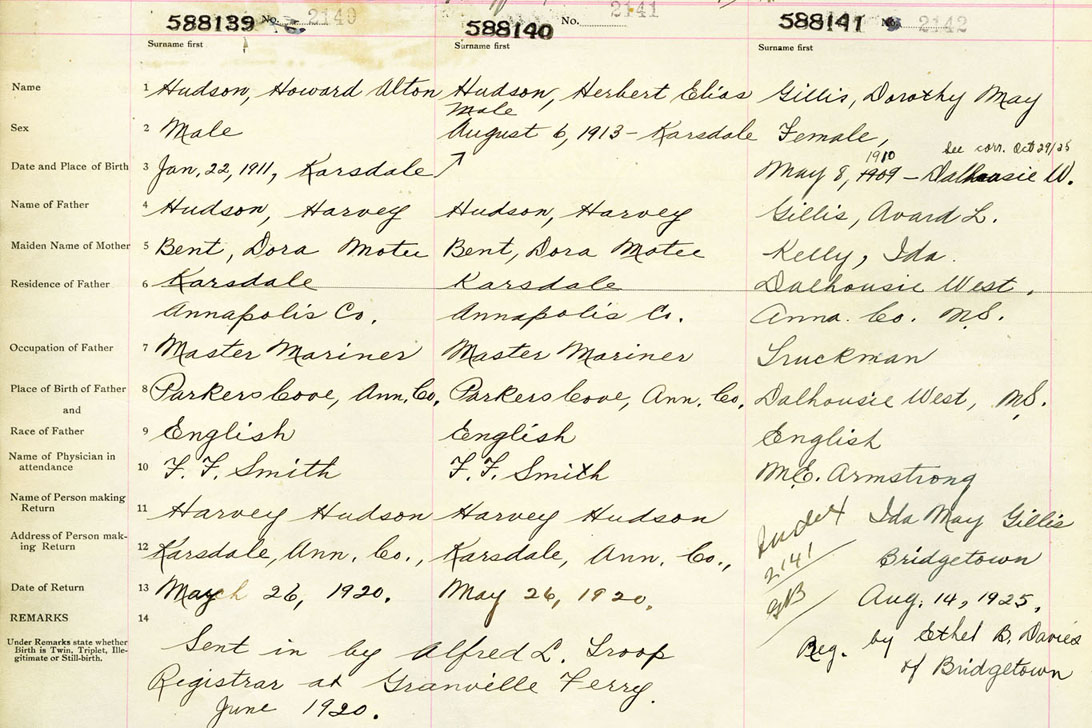 588139 No. 2140
588140 No. 2141
588141 No. 2142
Surname first
Surname first
Surname first
Name 1 Hudson, Howard Alton Hudson, Herbert Elias Gillis, Dorothy May
Male
Sex 2 Male August 6, 1913 - Karsdale Female,
1910 See corr. Oct 29/25
Date and Place of Birth 3 Jan, 22, 1911, Karsdale May 8, 1909 - Dalhousie W.
Name of Father 4 Hudson, Harvey Hudson, Harvey Gillis, Avard L.
Maiden Name of Mother 5 Bent, Dora Motee Bent, Dora Motee Kelly, Ida.
Residence of Father 6 Karsdale Karsdale Dalhousie West,
Annapolis Co. Annapolis Co. Anna. Co. N.S.
Occupation of Father 7 Master Mariner Master Mariner Truckman
Place of Birth of Father 8 Parkers Cove, Ann. Co, Parkers Cove, Ann. Co, Dalhousie West, N.S.
and
Race of Father 9 English English English
Name of Physician in attendance 10 F. F. Smith F. F. Smith M.E. Armstrong
Name of Person making Return 11 Harvey Hudson Harvey Hudson Ida May Gillis
Address of Person making Return 12 Karsdale, Ann. Co., Karsdale, Ann. Co., Bridgetown
Index
2141
GB
Date of Return 13 May 26, 1920. May 26, 1920. Aug. 14, 1925,
REMARKS 14
Under Remarks state whether
Birth is Twin, Triplet, Ille-
gitimate or Still-birth.
Sent in by Alfred L. Troop
Registrar at Granville Ferry.
June 1920.
Reg. by Ethel B. Davies
of Bridgetown